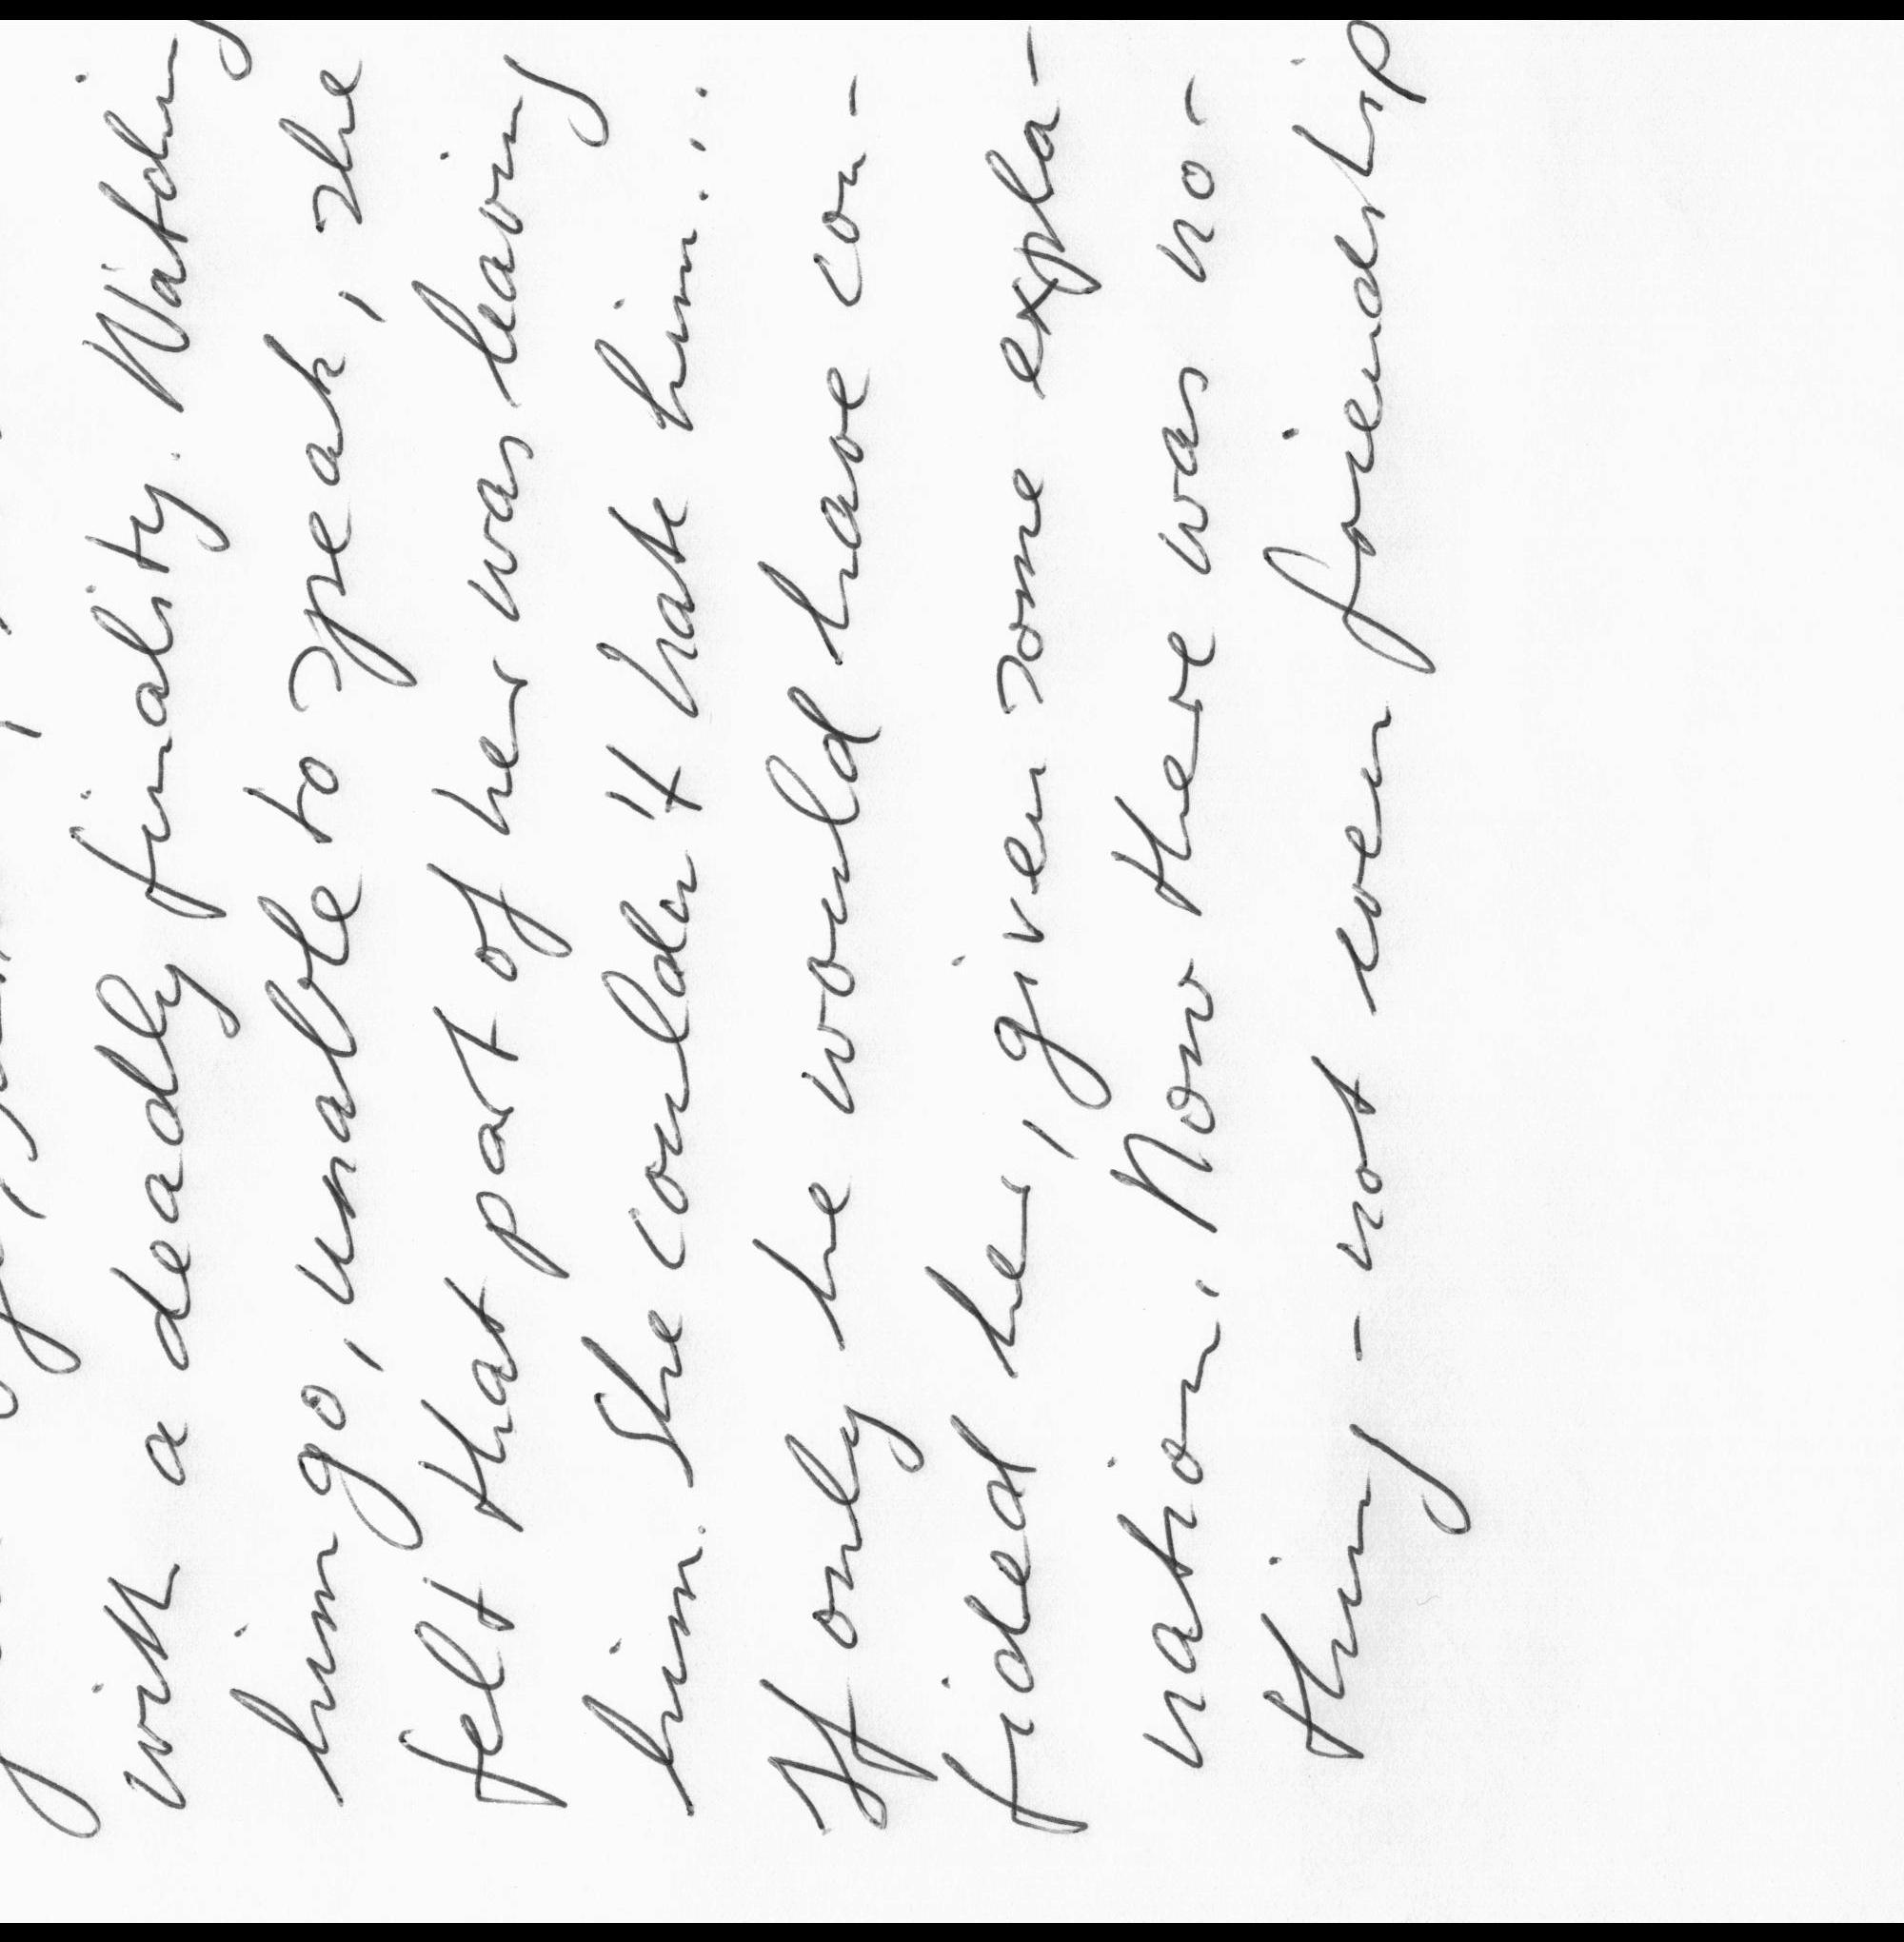 with a deadly finality. Watching
him go, unable to speak, she
felt that part of her was leaving
him. She couldn't hate him...
If only he would have con-
fided her, given some expla-
nation. Now there was no-
thing - not even friendship